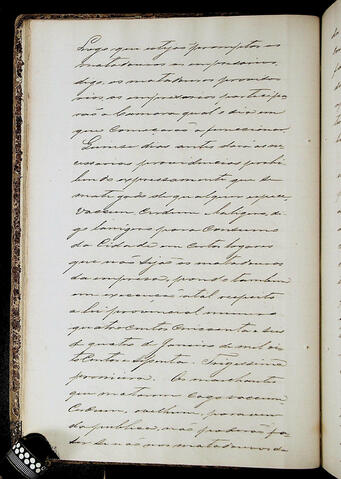 Logo que estejão promptos os
matadouros o empresario,
digo, os matadouros proviso
rios, os empresarios participa
rão a Camara qual o dia em
que começão a funccionar.
dias antes dará as ne
cessarias providencias prohi
bindo expressamente que se
mate gado de qualquer especie
vaccum, di
go lanigero para consumo
da Cidade em outro lugares
que não sejão os matadouros
da empresa, pondo tambem
em execução n'tal respeito
a lei provincial numero
quatro centos cincoenta e seis
de quatro de Janeiro de mil oi
to centos e setenta. Trigessima
primeira. Os marchantes
que matarem gago vaccum
ovelhum, para ven
da publica, não poderão fa
zer se não nos matadouros da